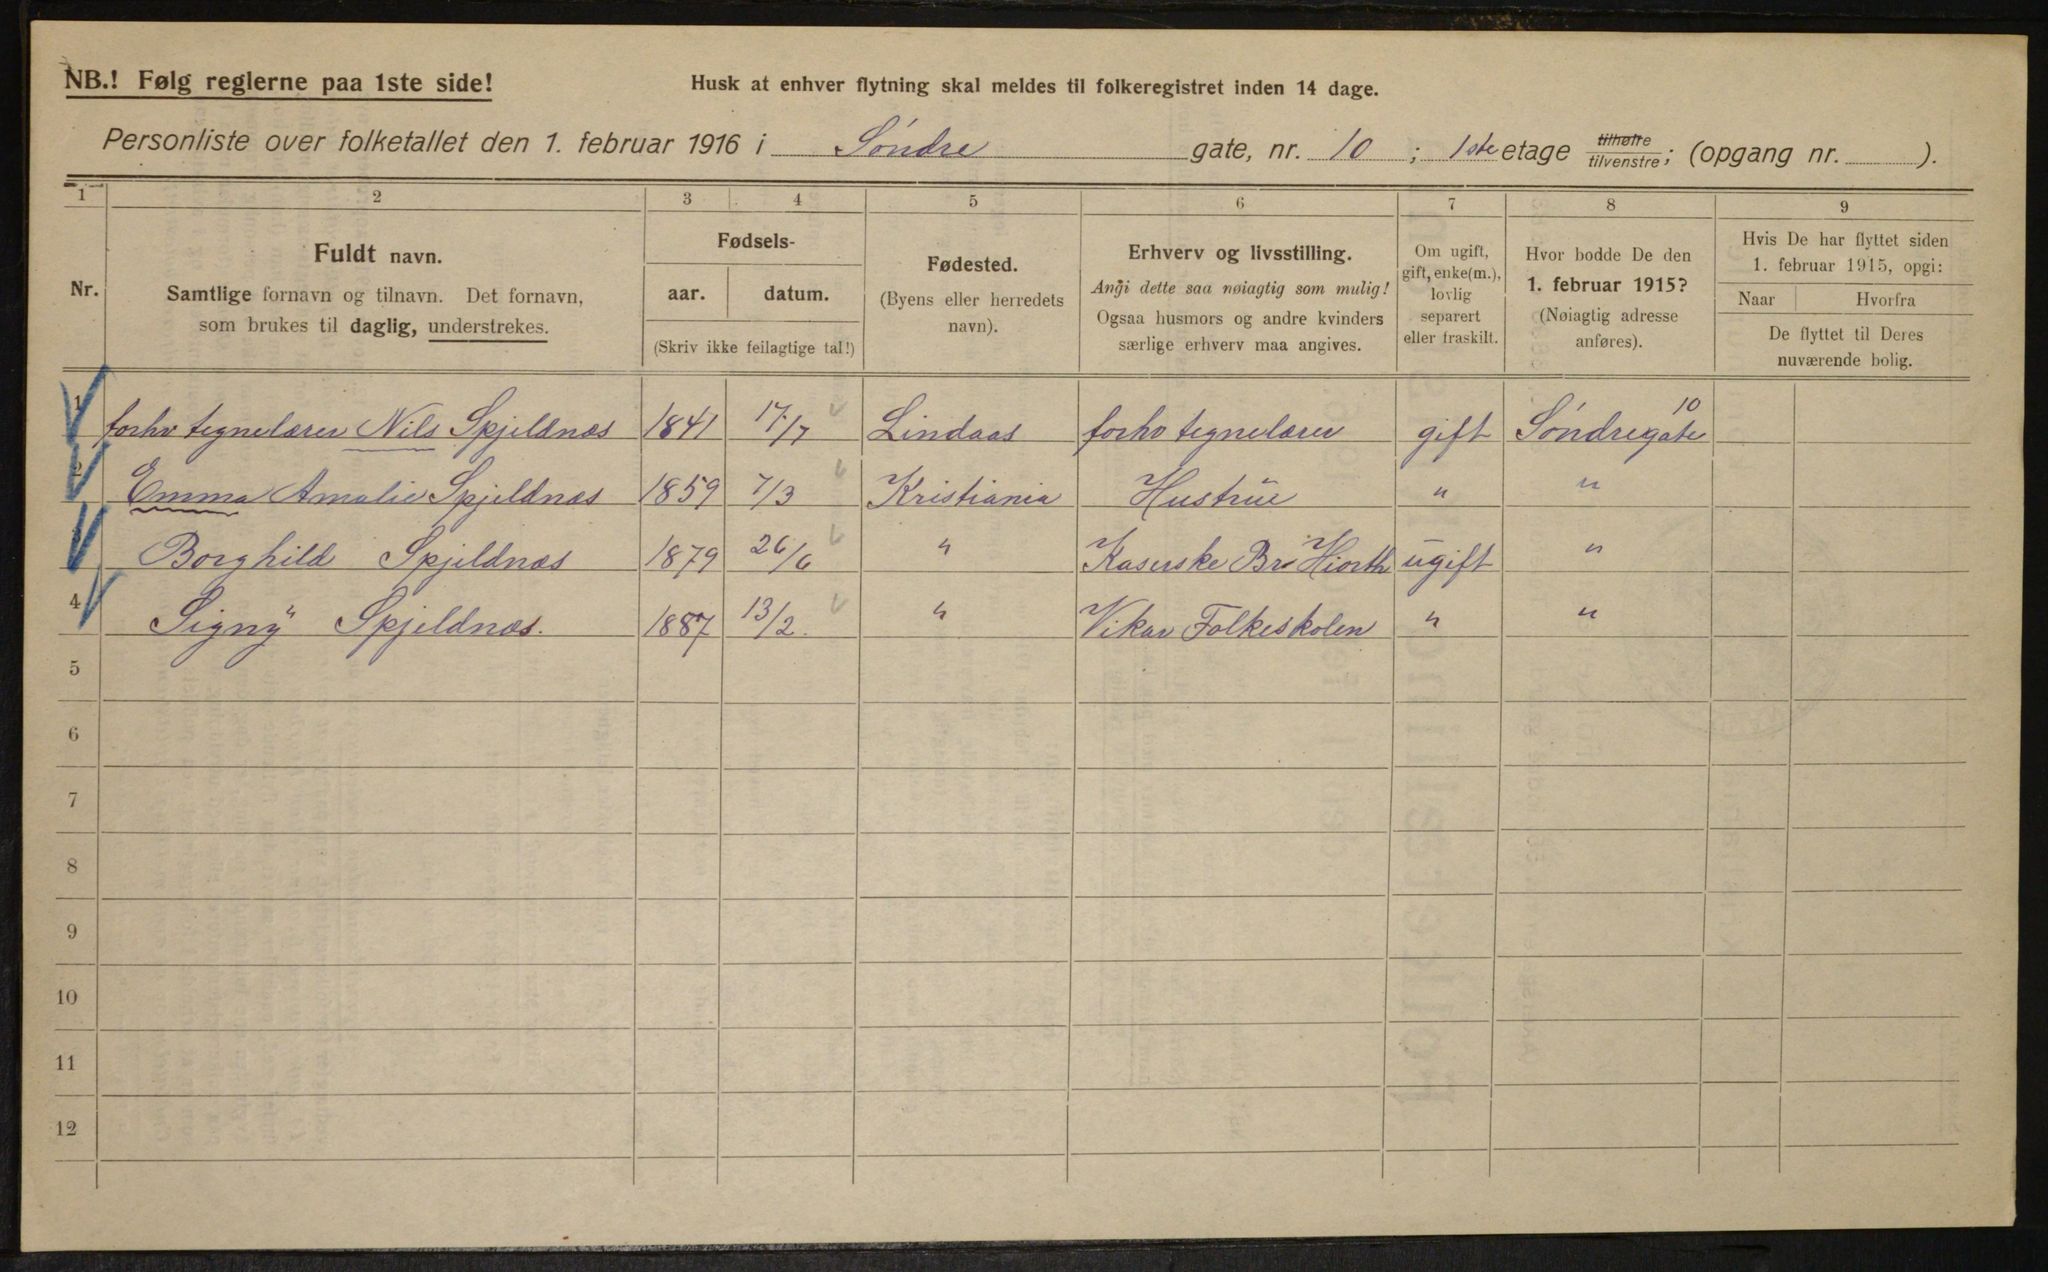 NB.! Følg reglerne paa 1ste side!
Husk at enhver flytning skal meldes til folkeregistret inden 14 dage.
Personliste over folketallet den 1. februar 1916 i Søndre gate, nr. 10 ; 1ste etage tilhøire tilvenstre; (opgang nr. ).
1 2 3 4 5 6 7 8 9
Nr.
Fuldt navn.
Samtlige fornavn og tilnavn. Det fornavn,
som brukes til daglig, understrekes.
Fødsels-
aar. datum.
(Skriv ikke feilagtige tal!)
Fødested.
(Byens eller herredets
navn).
Erhverv og livsstilling.
Angi dette saa nøiagtig som mulig!
Ogsaa husmors og andre kvinders
særlige erhverv maa angives.
Om ugift,
gift, enke(m.),
lovlig
separert
eller fraskilt.
Hvor bodde De den
1. februar 1915?
(Nøiagtig adresse
anføres).
Hvis De har flyttet siden
1. februar 1915, opgi:
Naar Hvorfra
De flyttet til Deres
nuværende bolig.
1 forhv tegnelærer Nils Spjeldnæs 1841 17/7 Lindaas forhv tegnelærer gift Søndregate 10
2 Emma Amalie Spjeldnæs 1859 7/3 Kristiania Hustrue " "
3 Borghild Spjeldnæs 1879 26/6 " Kaserske Br. Hiorth ugift "
4 Signy Spjeldnæs. 1887 13/2 " Vikar Folkeskolen " "
5
6
7
8
9
10
11
12